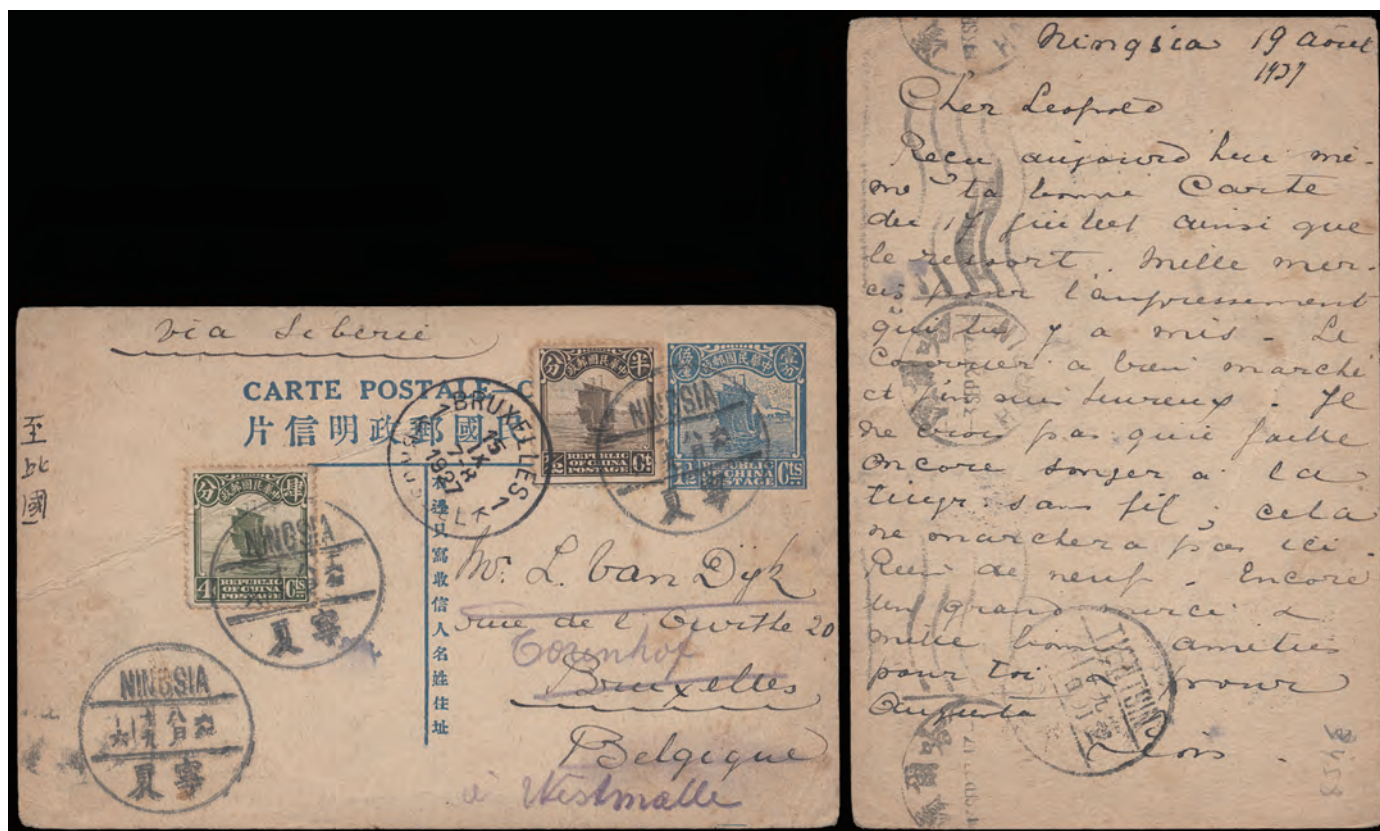 via Siberie
CARTE POSTALE
片信明政郵國民
至比國
半 分
中華民國郵政
½ REPUBLIC OF CHINA POSTAGE Ct
壹 分
中華民國郵政
1½ REPUBLIC OF CHINA POSTAGE Cts
NINGSIA
夏 寧
1 BRUXELLES 1
15
IX
7-8
1927
分 肆
中華民國郵政
4 REPUBLIC OF CHINA POSTAGE Cts
NINGSIA
夏 寧
NINGSIA
夏 寧
寫收信人名姓住址
Mr. L. Van Dijk
rue de l'Ourthe 20
Bruxelles
Belgique
à Westmalle
Ningsia 19 août
1927
Cher Leopold
Recu aujourd hui mê-
me ta bonne Carte
du 17 juillet ainsi que
le ressort. Mille mer-
cis pour l'empressement
que tu y a mis - Le
Courrier a bien marché
et j'en suis heureux. Je
ne crois pas qu'il faille
encore songer à la
sans fil ; cela
ne marchera pas ici.
Rien de neuf. Encore
un grand merci &
mille bonnes amitiés
pour toi & pour
Augusta